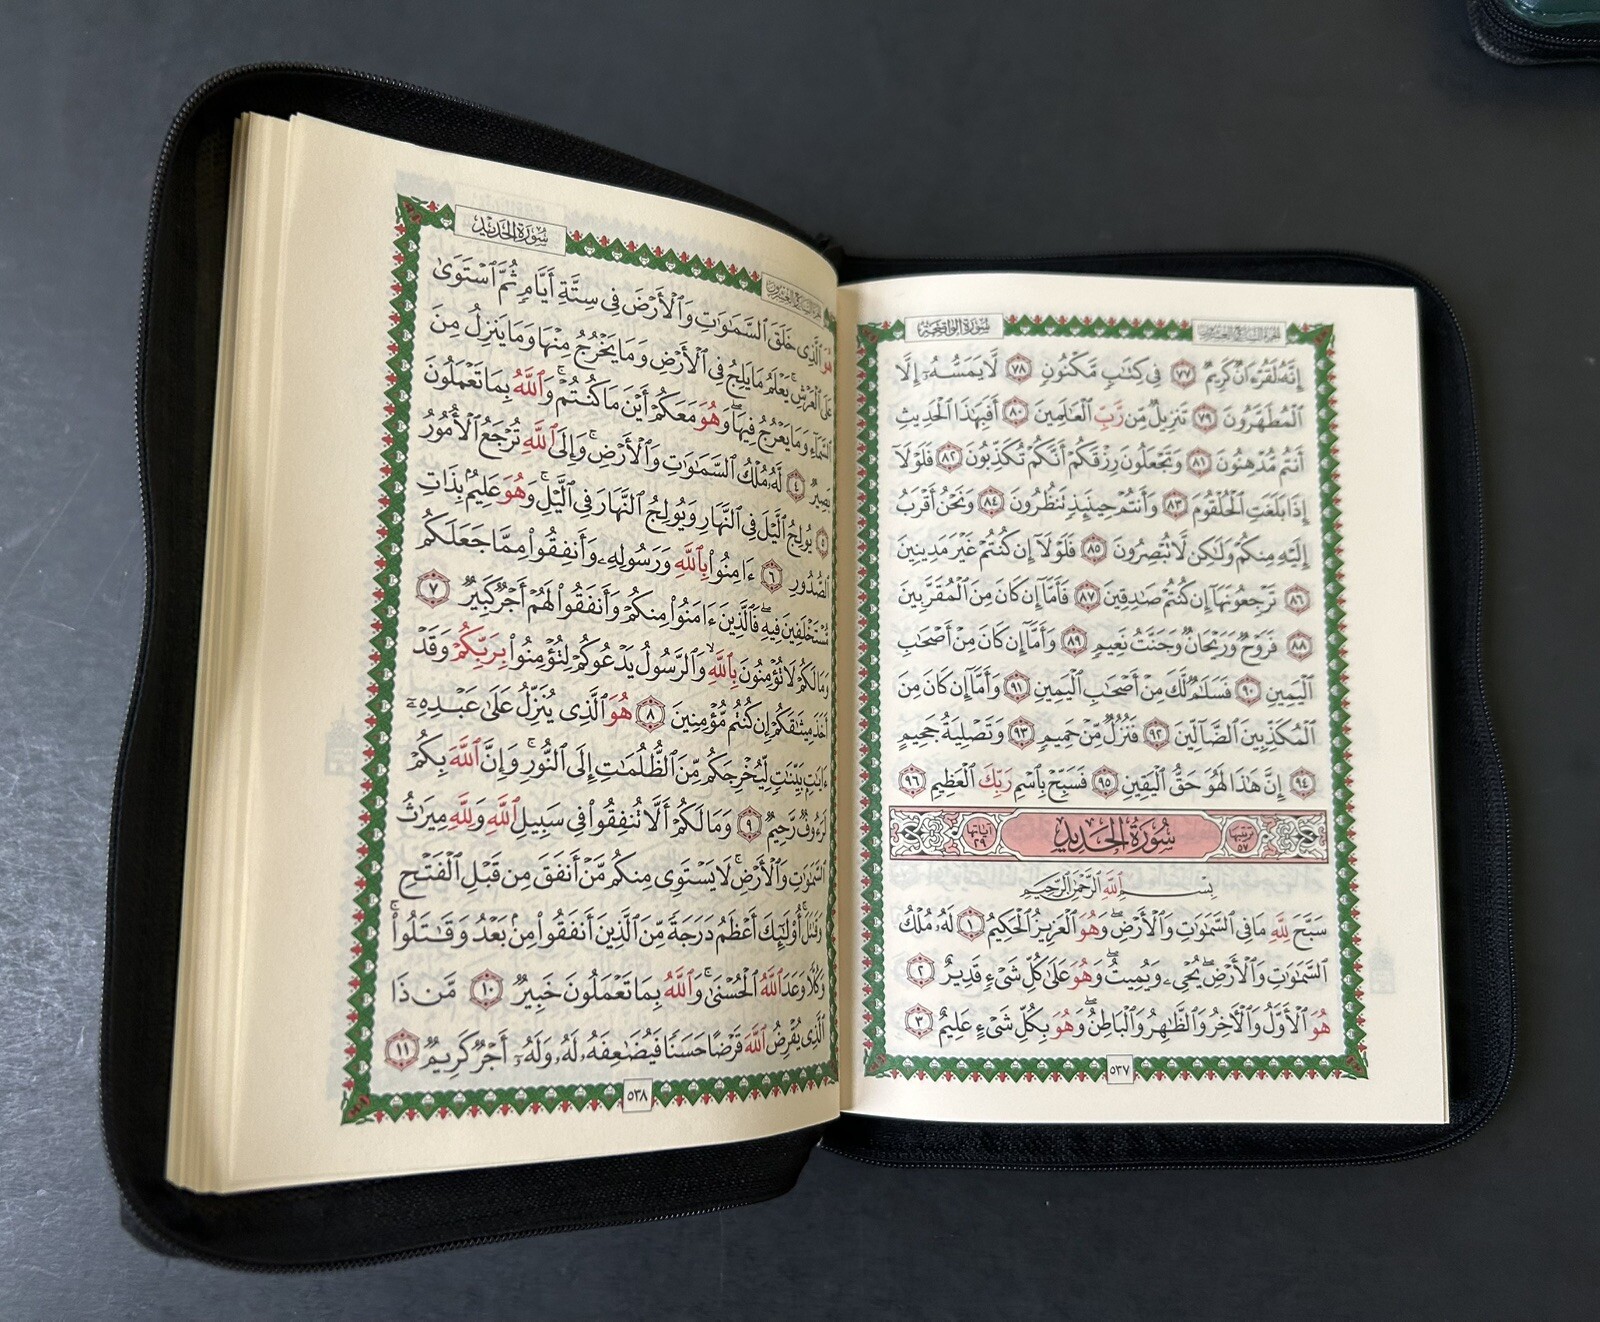 سُورَةُ الوَاقِعَةِ
الجزء السابع والعشرون
إِنَّهُۥ لَقُرْءَانٌ كَرِيمٌ ٧٧ فِى كِتَٰبٍ مَّكْنُونٍ ٧٨ لَّا يَمَسُّهُۥٓ إِلَّا
ٱلْمُطَهَّرُونَ ٧٩ تَنزِيلٌ مِّن رَّبِّ ٱلْعَٰلَمِينَ ٨٠ أَفَبِهَٰذَا ٱلْحَدِيثِ
أَنتُم مُّدْهِنُونَ ٨١ وَتَجْعَلُونَ رِزْقَكُمْ أَنَّكُمْ تُكَذِّبُونَ ٨٢ فَلَوْلَآ
إِذَا بَلَغَتِ ٱلْحُلْقُومَ ٨٣ وَأَنتُمْ حِينَئِذٍ تَنظُرُونَ ٨٤ وَنَحْنُ أَقْرَبُ
إِلَيْهِ مِنكُمْ وَلَٰكِن لَّا تُبْصِرُونَ ٨٥ فَلَوْلَآ إِن كُنتُمْ غَيْرَ مَدِينِينَ
٨٦ تَرْجِعُونَهَآ إِن كُنتُمْ صَٰدِقِينَ ٨٧ فَأَمَّآ إِن كَانَ مِنَ ٱلْمُقَرَّبِينَ
٨٨ فَرَوْحٌ وَرَيْحَانٌ وَجَنَّتُ نَعِيمٍ ٨٩ وَأَمَّآ إِن كَانَ مِنْ أَصْحَٰبِ
ٱلْيَمِينِ ٩٠ فَسَلَٰمٌ لَّكَ مِنْ أَصْحَٰبِ ٱلْيَمِينِ ٩١ وَأَمَّآ إِن كَانَ مِنَ
ٱلْمُكَذِّبِينَ ٱلضَّآلِّينَ ٩٢ فَنُزُلٌ مِّنْ حَمِيمٍ ٩٣ وَتَصْلِيَةُ جَحِيمٍ
٩٤ إِنَّ هَٰذَا لَهُوَ حَقُّ ٱلْيَقِينِ ٩٥ فَسَبِّحْ بِٱسْمِ رَبِّكَ ٱلْعَظِيمِ ٩٦
ترتيبها ٥٧ سُورَةُ الحَدِيدِ آياتها ٢٩
بِسْمِ ٱللَّهِ ٱلرَّحْمَٰنِ ٱلرَّحِيمِ
سَبَّحَ لِلَّهِ مَا فِى ٱلسَّمَٰوَٰتِ وَٱلْأَرْضِ ۖ وَهُوَ ٱلْعَزِيزُ ٱلْحَكِيمُ ١ لَهُۥ مُلْكُ
ٱلسَّمَٰوَٰتِ وَٱلْأَرْضِ ۖ يُحْىِۦ وَيُمِيتُ ۖ وَهُوَ عَلَىٰ كُلِّ شَىْءٍ قَدِيرٌ ٢
هُوَ ٱلْأَوَّلُ وَٱلْءَاخِرُ وَٱلظَّٰهِرُ وَٱلْبَاطِنُ ۖ وَهُوَ بِكُلِّ شَىْءٍ عَلِيمٌ ٣
٥٣٧
سُورَةُ الحَدِيدِ
الجزء السابع والعشرون
هُوَ ٱلَّذِى خَلَقَ ٱلسَّمَٰوَٰتِ وَٱلْأَرْضَ فِى سِتَّةِ أَيَّامٍ ثُمَّ ٱسْتَوَىٰ
عَلَى ٱلْعَرْشِ ۚ يَعْلَمُ مَا يَلِجُ فِى ٱلْأَرْضِ وَمَا يَخْرُجُ مِنْهَا وَمَا يَنزِلُ مِنَ
ٱلسَّمَآءِ وَمَا يَعْرُجُ فِيهَا ۖ وَهُوَ مَعَكُمْ أَيْنَ مَا كُنتُمْ ۚ وَٱللَّهُ بِمَا تَعْمَلُونَ
بَصِيرٌ ٤ لَّهُۥ مُلْكُ ٱلسَّمَٰوَٰتِ وَٱلْأَرْضِ ۚ وَإِلَى ٱللَّهِ تُرْجَعُ ٱلْأُمُورُ
٥ يُولِجُ ٱلَّيْلَ فِى ٱلنَّهَارِ وَيُولِجُ ٱلنَّهَارَ فِى ٱلَّيْلِ ۚ وَهُوَ عَلِيمٌۢ بِذَاتِ
ٱلصُّدُورِ ٦ ءَامِنُوا۟ بِٱللَّهِ وَرَسُولِهِۦ وَأَنفِقُوا۟ مِمَّا جَعَلَكُم
مُّسْتَخْلَفِينَ فِيهِ ۖ فَٱلَّذِينَ ءَامَنُوا۟ مِنكُمْ وَأَنفَقُوا۟ لَهُمْ أَجْرٌ كَبِيرٌ ٧
وَمَا لَكُمْ لَا تُؤْمِنُونَ بِٱللَّهِ ۙ وَٱلرَّسُولُ يَدْعُوكُمْ لِتُؤْمِنُوا۟ بِرَبِّكُمْ وَقَدْ
أَخَذَ مِيثَٰقَكُمْ إِن كُنتُم مُّؤْمِنِينَ ٨ هُوَ ٱلَّذِى يُنَزِّلُ عَلَىٰ عَبْدِهِۦٓ
ءَايَٰتٍۭ بَيِّنَٰتٍ لِّيُخْرِجَكُم مِّنَ ٱلظُّلُمَٰتِ إِلَى ٱلنُّورِ ۚ وَإِنَّ ٱللَّهَ بِكُمْ
لَرَءُوفٌ رَّحِيمٌ ٩ وَمَا لَكُمْ أَلَّا تُنفِقُوا۟ فِى سَبِيلِ ٱللَّهِ وَلِلَّهِ مِيرَٰثُ
ٱلسَّمَٰوَٰتِ وَٱلْأَرْضِ ۚ لَا يَسْتَوِى مِنكُم مَّنْ أَنفَقَ مِن قَبْلِ ٱلْفَتْحِ
وَقَٰتَلَ ۚ أُو۟لَٰٓئِكَ أَعْظَمُ دَرَجَةً مِّنَ ٱلَّذِينَ أَنفَقُوا۟ مِنۢ بَعْدُ وَقَٰتَلُوا۟ ۚ
وَكُلًّا وَعَدَ ٱللَّهُ ٱلْحُسْنَىٰ ۚ وَٱللَّهُ بِمَا تَعْمَلُونَ خَبِيرٌ ١٠ مَّن ذَا
ٱلَّذِى يُقْرِضُ ٱللَّهَ قَرْضًا حَسَنًا فَيُضَٰعِفَهُۥ لَهُۥ وَلَهُۥٓ أَجْرٌ كَرِيمٌ ١١
٥٣٨